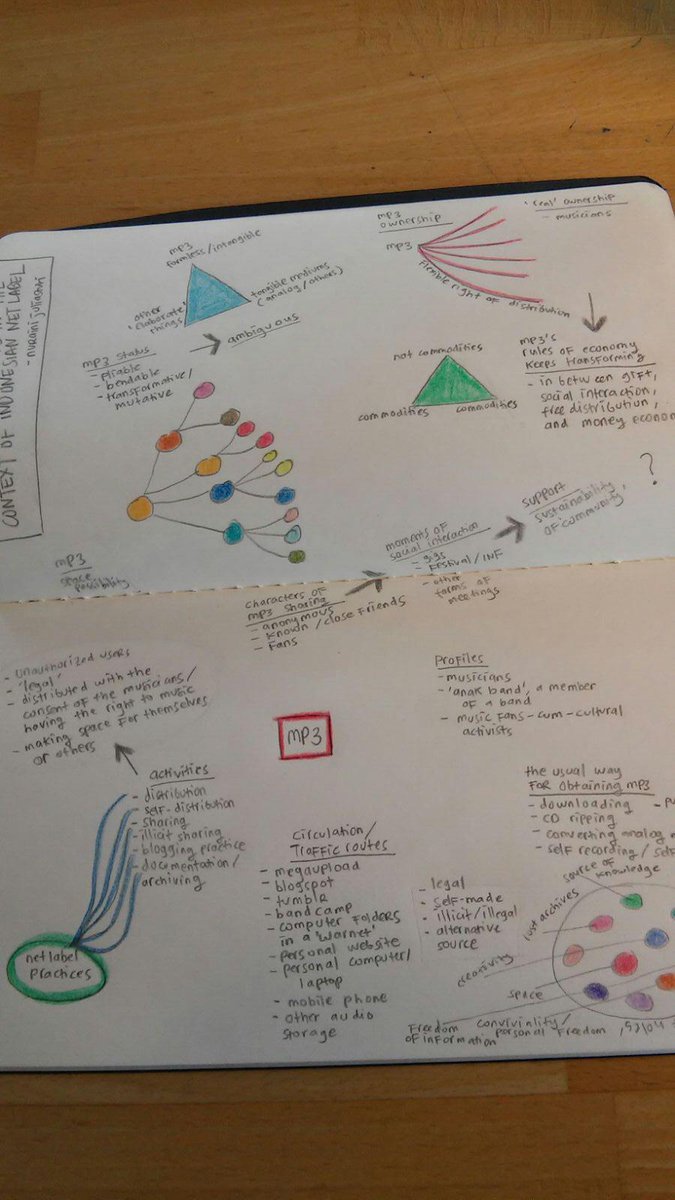 CONTEXT OF INDONESIAN NETLABEL
- nuraini juliastuti
mp3
formless/intangible
other
'elaborate'
things
tangible mediums
(analog/others)
mp3 status
- pliable
- bendable
- transformative/
mutative
ambiguous
mp3
space
possibility
mp3
ownership
mp3
'real' ownership
- musicians
flexible right of distribution
mp3's
rules of economy
keeps transforming
- in between gift,
social interaction,
free distribution,
and money econom
not commodities
commodities
commodities
characters of
mp3 sharing
- anonymous
- known/close friends
- fans
moments of
social interaction
- gigs
- FESTIVAL/INF
- other
forms of
meetings
support
sustainability
of community
?
- unauthorized users
- 'legal'
- distributed with the
consent of the musicians/
having the right to music
- making space for themselves
or others
activities
- distribution
- self-distribution
- sharing
- illicit sharing
- blogging practice
- documentation/
archiving
netlabel
practices
mp3
Profiles
- musicians
- 'anak band', a member
of a band
- music fans-cum-cultural
activists
Circulation/
Traffic routes
- megaupload
- blogspot
- tumblr
- bandcamp
- computer folders
in a 'warnet'
- personal website
- personal computer/
laptop
- mobile phone
- other audio
storage
the usual way
for obtaining mp3
- downloading
- CD ripping
- converting analog
- self recording/
- legal
- self-made
- illicit/illegal
- alternative
source
source of
knowledge
archives
creativity
space
Freedom
of information
conviviality/
personal freedom